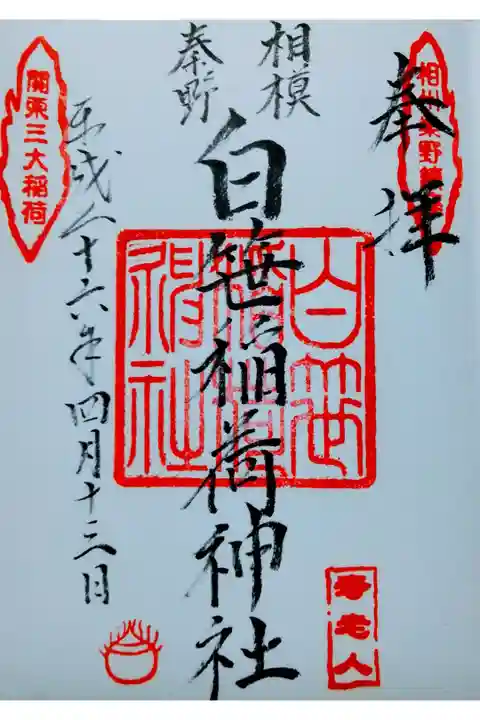 奉拝
相模
秦野
白笹稲荷神社
平成二十六年四月十三日
関東三大稲荷
白笹
稲荷
神社
寿老人